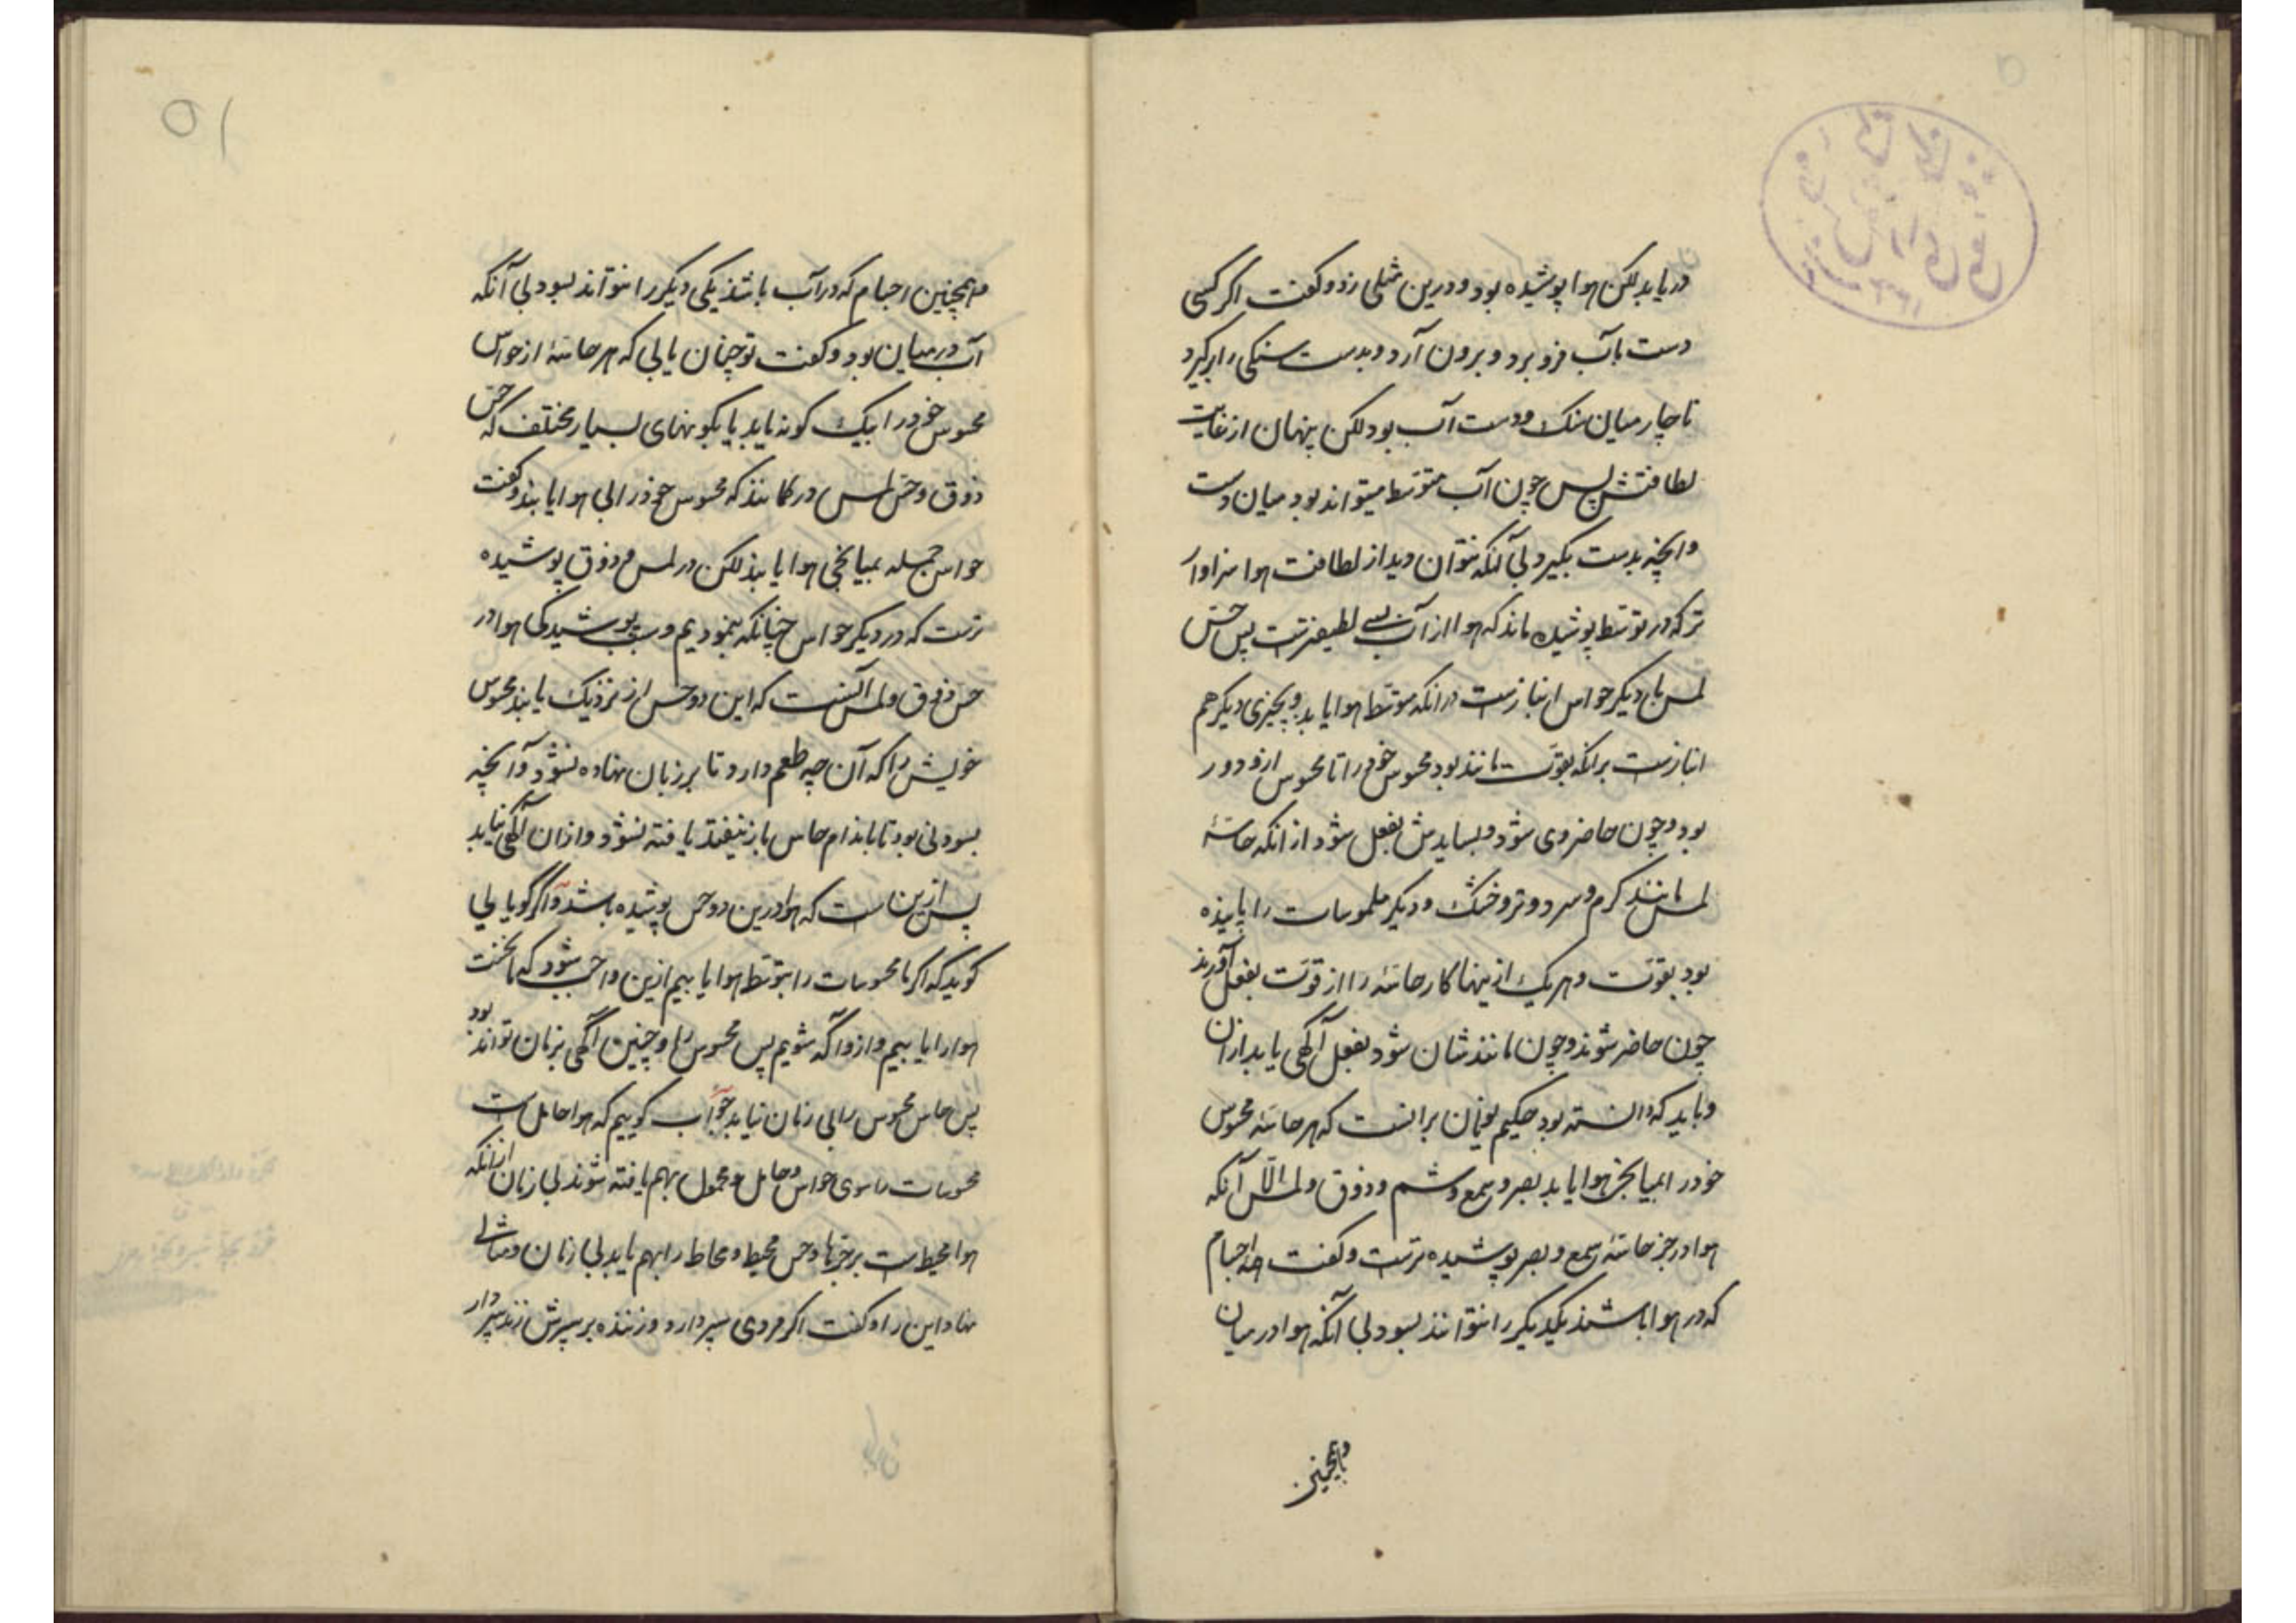 دریابد لکن هوا پوشیده بود و درین مثلی زد و کفت اکر کسی
دست بآب فرو برد و برون آرد و بدست سنکی را برکیرد
ناچار میان سنک و دست آب بود لکن پنهان از غایت
لطافتش پس چون آب متوسّط میتواند بود میان دست
وانچه بدست بکیرد بی آنکه نتوان دید از لطافت هوا سزاوار
تر که در توسّط پوشیده ماند که هوا از آب بسی لطیفترست پس حسّ
لمس با دیکر حواس انبازست در انکه متوسّط هوا یابد و بچیزی دیکر هم
انبازست برانکه بقوّت مانند بود محسوس خود را تا محسوس ازو دور
بود و چون حاضر وی شود و بسایدش بفعل شود از انکه حاسّهٔ
لمس مانند کرم و سرد و تر و خشک و دیکر ملموسات را یابنده
بود بقوّت و هر یک ازینها کار حاسّه را از قوّت بفعل آورند
چون حاضر شوند و چون مانندشان شود بفعل آکهی یابد ازان
و باید که دانسته بود حکیم یونان برانست که هر حاسّه محسوس
خود را بمیانجی هوا یابد بصر و سمع و شم و ذوق و لمس الّا آنکه
هوا در جز حاسّهٔ سمع و بصر پوشیده ترست و کفت اجسام
که در هوا باشند یکدیکر را نتوانند بسود بی آنکه هوا در میان
وهمچنین
۵۱
و همچنین اجسام که در آب باشند یکی دیکر را نتواند بسود بی آنکه
آب در میان بود و کفت تو چنان یابی که هر حاسّهٔ از حواس
محسوس خود را بیک کونه یابد یا بکونهای بسیار مختلف که حسّ
ذوق و حسّ لمس در کمانند که محسوس خود را بی هوا یابند و کفت
حواس جمله بمیانجی هوا یابند لکن در لمس و ذوق پوشیده
ترست که در دیکر حواس چنانکه بنمودیم و سبب پوشیدکی هوا در
حس ذوق و لمس آنست که این دو حس از نزدیک یابند محسوس
خویش را که آن چه طعم دارد تا بر زبان نهاده نشود و آنچه
بسودنی بود تا باندام حاس باز نیفتد یافته نشود و ازان آکهی نیاید
پس ازین است که هوا درین دو حس پوشیده باشد و اکر کویایی
کوید که اکر ما محسوسات را بتوسّط هوا یابیم ازین واجب شود که ما نخست
هوا را یابیم و ازو آکه شویم پس محسوس را و چنین آکهی بزمان تواند بود
پس حاس محسوس را بی زمان نیابد جواب کوییم که هوا حامل است
محسوسات را سوی حواس و حامل و محمول بهم یافته شوند بی زمان از انکه
هوا محیط است بر چیزها و حس محیط و محاط را بهم یابد بی زمان و مثالی
نهاد این را و کفت اکر مردی سپر دارد و زننده بر سپرش زند سپردار